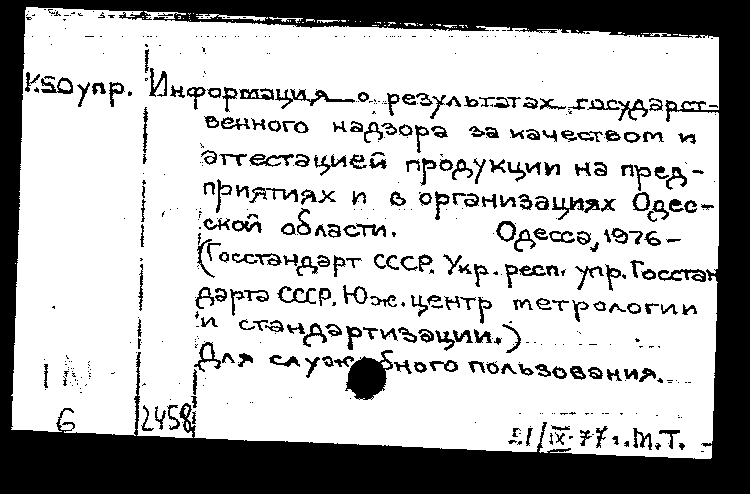 К50упр. Информация о результатах государст-
венного надзора за качеством и
аттестацией продукции на пред-
приятиях и в организациях Одес-
ской области. Одесса, 1976-
(Госстандарт СССР. Укр. респ. упр. Госстан
дарта СССР. Юж. центр метрологии
и стандартизации.)
Для служебного пользования.
1
6 2458
21/IX-77 г. М.Т.